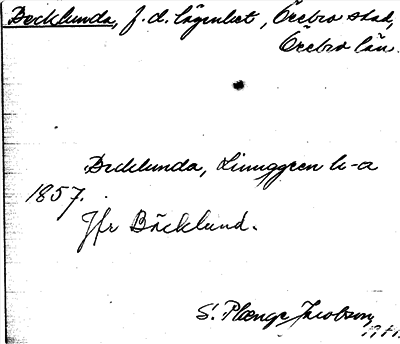 Becklunda, f.d. lägenhet, Örebro stad,
Örebro län.
Becklunda, Ljunggren k-a
1857.
Jfr Bäcklund.
S. Plænge Jacobson